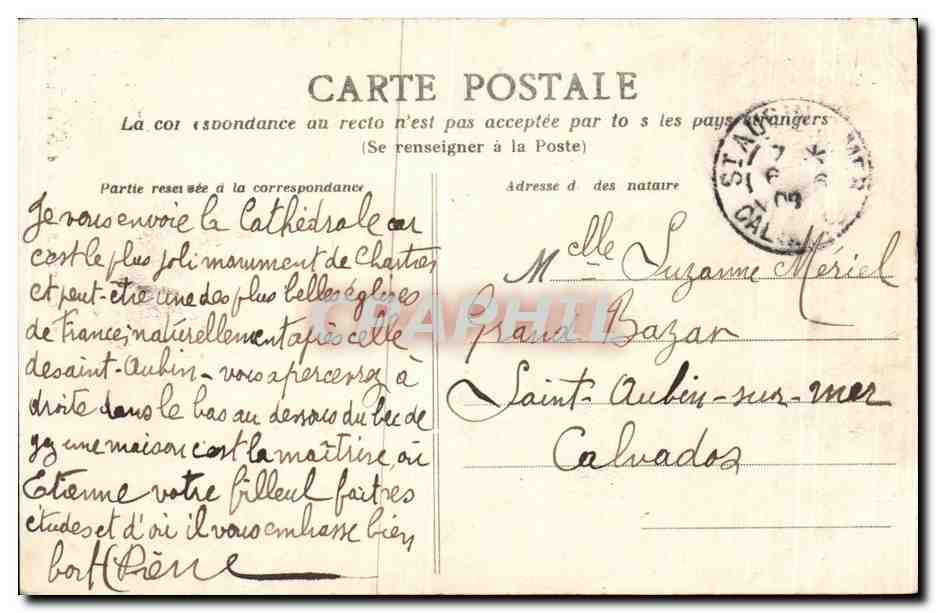 CARTE POSTALE
La cor espondance au recto n'est pas acceptée par to s les pays étrangers
(Se renseigner à la Poste)
Partie reservée à la correspondance
Je vous envoie la Cathédrale car
c'est le plus joli monument de Chartres
et peut-être une des plus belles églises
de France, naturellement après celle
de saint-Aubin - vous apercevrez à
droite dans le bas au dessous du bec de
gaz une maison c'est la maîtrise, où
Etienne votre filleul fait ses
études et d'où il vous embrasse bien
fort Pierre
Adresse d des nataire
Mlle Suzanne Mériel
Grand Bazar
Saint-Aubin-sur-mer
Calvados
ST AUBIN MER
7
6
09
CAL
CPAPHIL